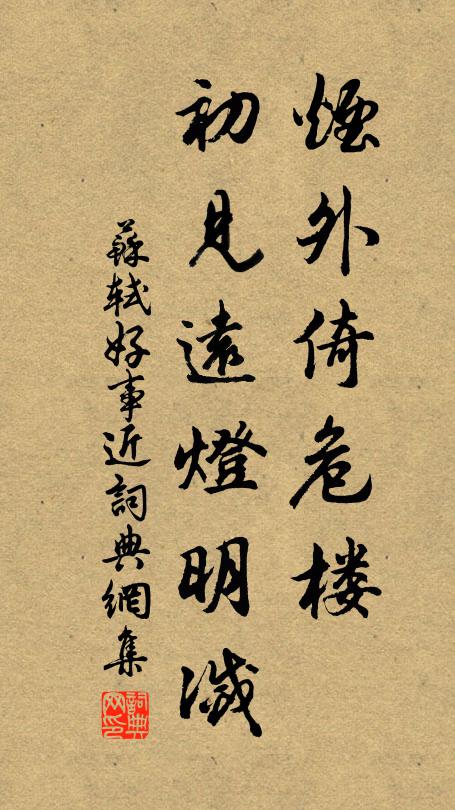 煙外倚危楼
初見遠燈明滅
蘇軾好事近詞典網集
詞典网印